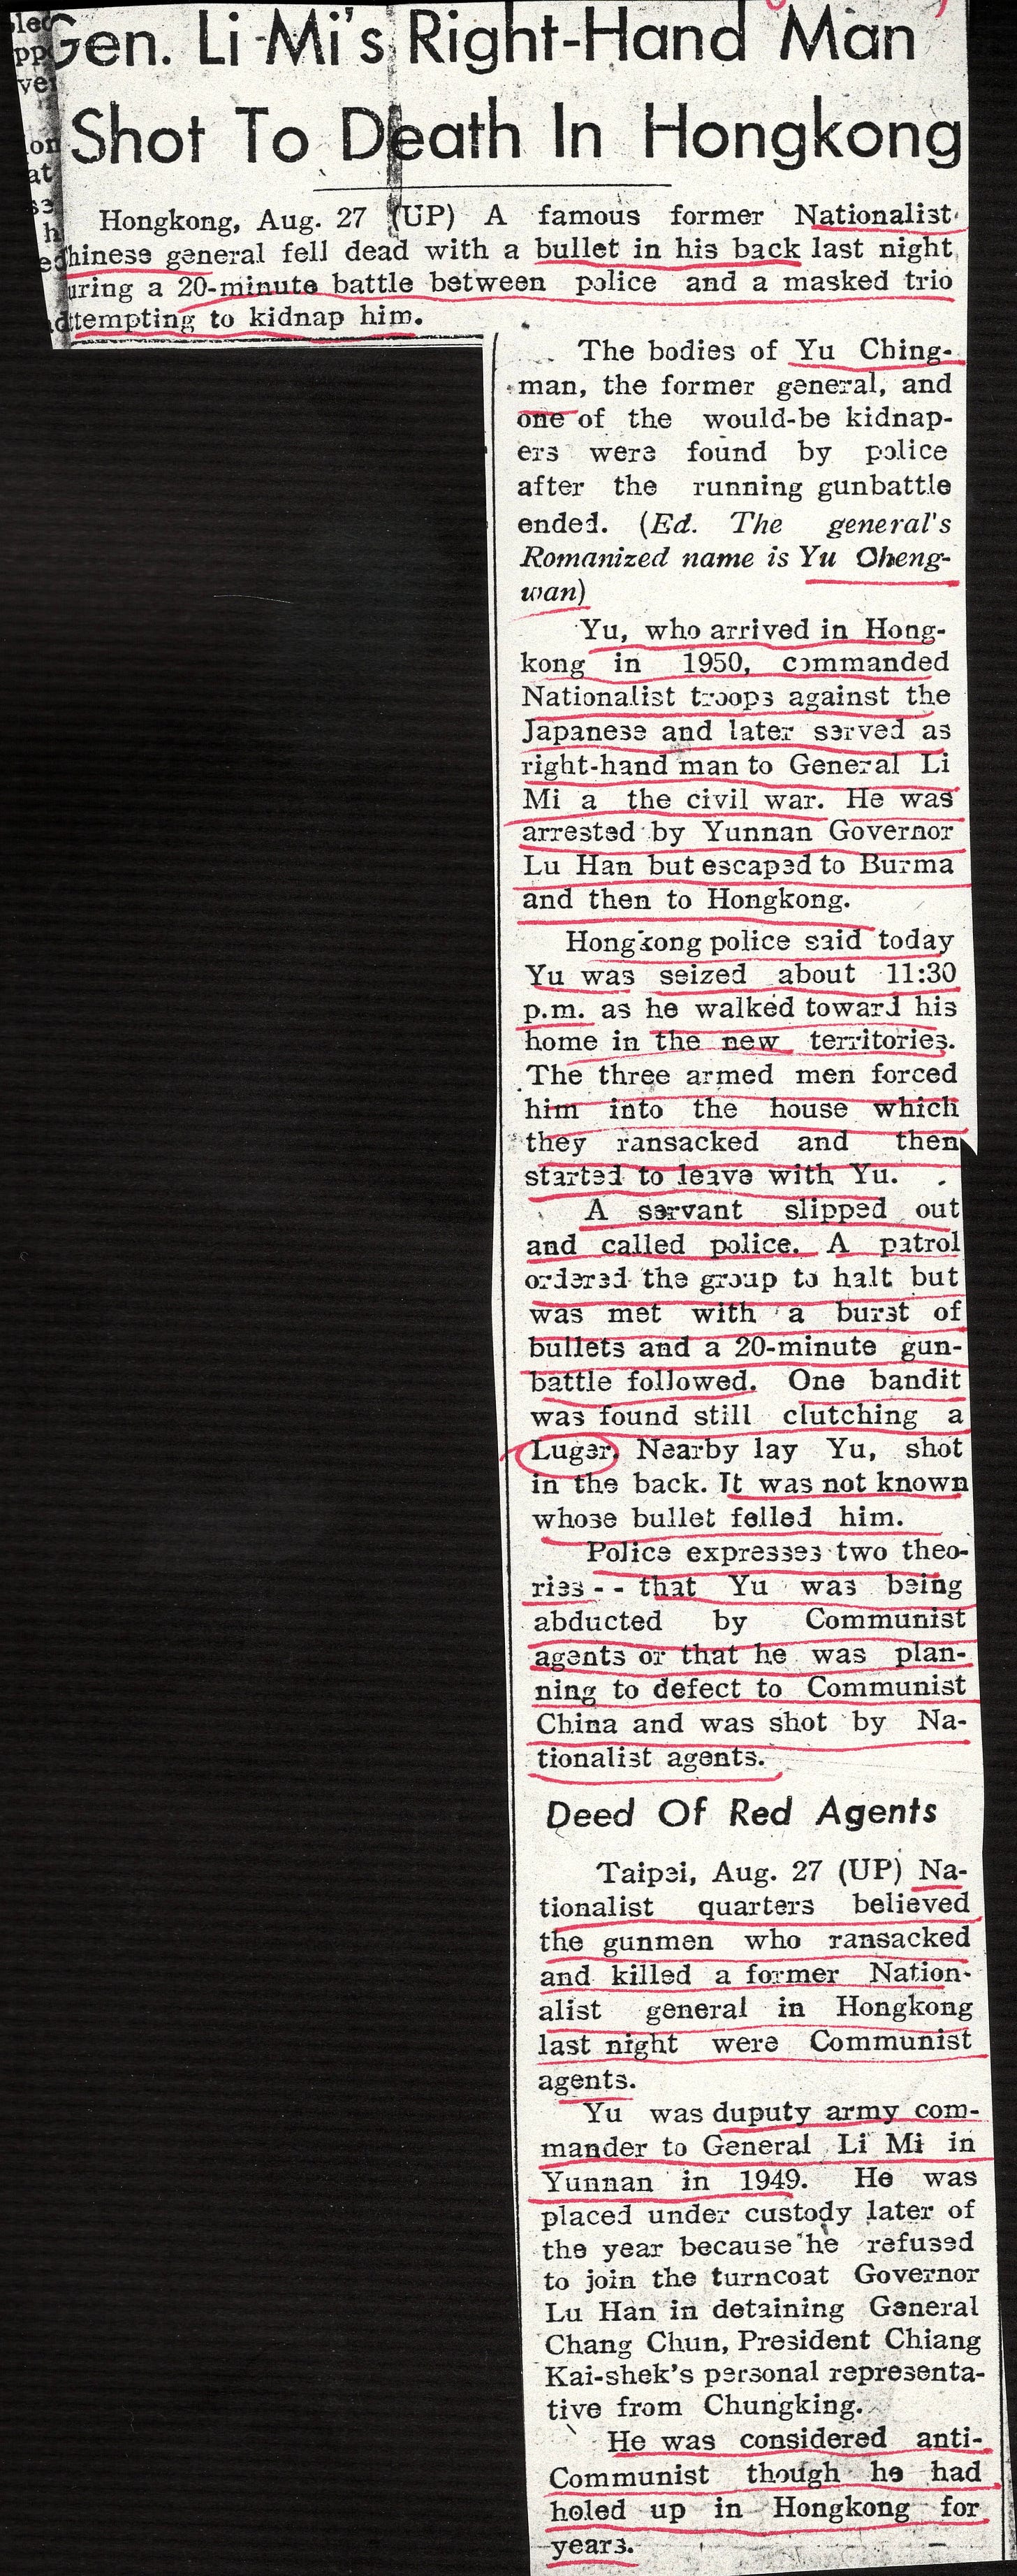 Gen. Li Mi's Right-Hand Man
Shot To Death In Hongkong
Hongkong, Aug. 27 (UP) A famous former Nationalist
hiness general fell dead with a bullet in his back last night
uring a 20-minute battle between police and a masked trio
ttempting to kidnap him.
The bodies of Yu Ching-
man, the former general, and
one of the would-be kidnap-
ers were found by police
after the running gunbattle
ended. (Ed. The general's
Romanized name is Yu Cheng-
wan)
Yu, who arrived in Hong-
kong in 1950, commanded
Nationalist troops against the
Japanese and later served as
right-hand man to General Li
Mi a the civil war. He was
arrested by Yunnan Governor
Lu Han but escaped to Burma
and then to Hongkong.
Hongkong police said today
Yu was seized about 11:30
p.m. as he walked toward his
home in the new territories.
The three armed men forced
him into the house which
they ransacked and then
started to leave with Yu.
A servant slipped out
and called police. A patrol
ordered the group to halt but
was met with a burst of
bullets and a 20-minute gun-
battle followed. One bandit
was found still clutching a
Luger. Nearby lay Yu, shot
in the back. It was not known
whose bullet felled him.
Police expresses two theo-
ries -- that Yu was being
abducted by Communist
agents or that he was plan-
ning to defect to Communist
China and was shot by Na-
tionalist agents.
Deed Of Red Agents
Taipei, Aug. 27 (UP) Na-
tionalist quarters believed
the gunmen who ransacked
and killed a former Nation-
alist general in Hongkong
last night were Communist
agents.
Yu was duputy army com-
mander to General Li Mi in
Yunnan in 1949. He was
placed under custody later of
the year because he refused
to join the turncoat Governor
Lu Han in detaining General
Chang Chun, President Chiang
Kai-shek's personal representa-
tive from Chungking.
He was considered anti-
Communist though he had
holed up in Hongkong for
years.